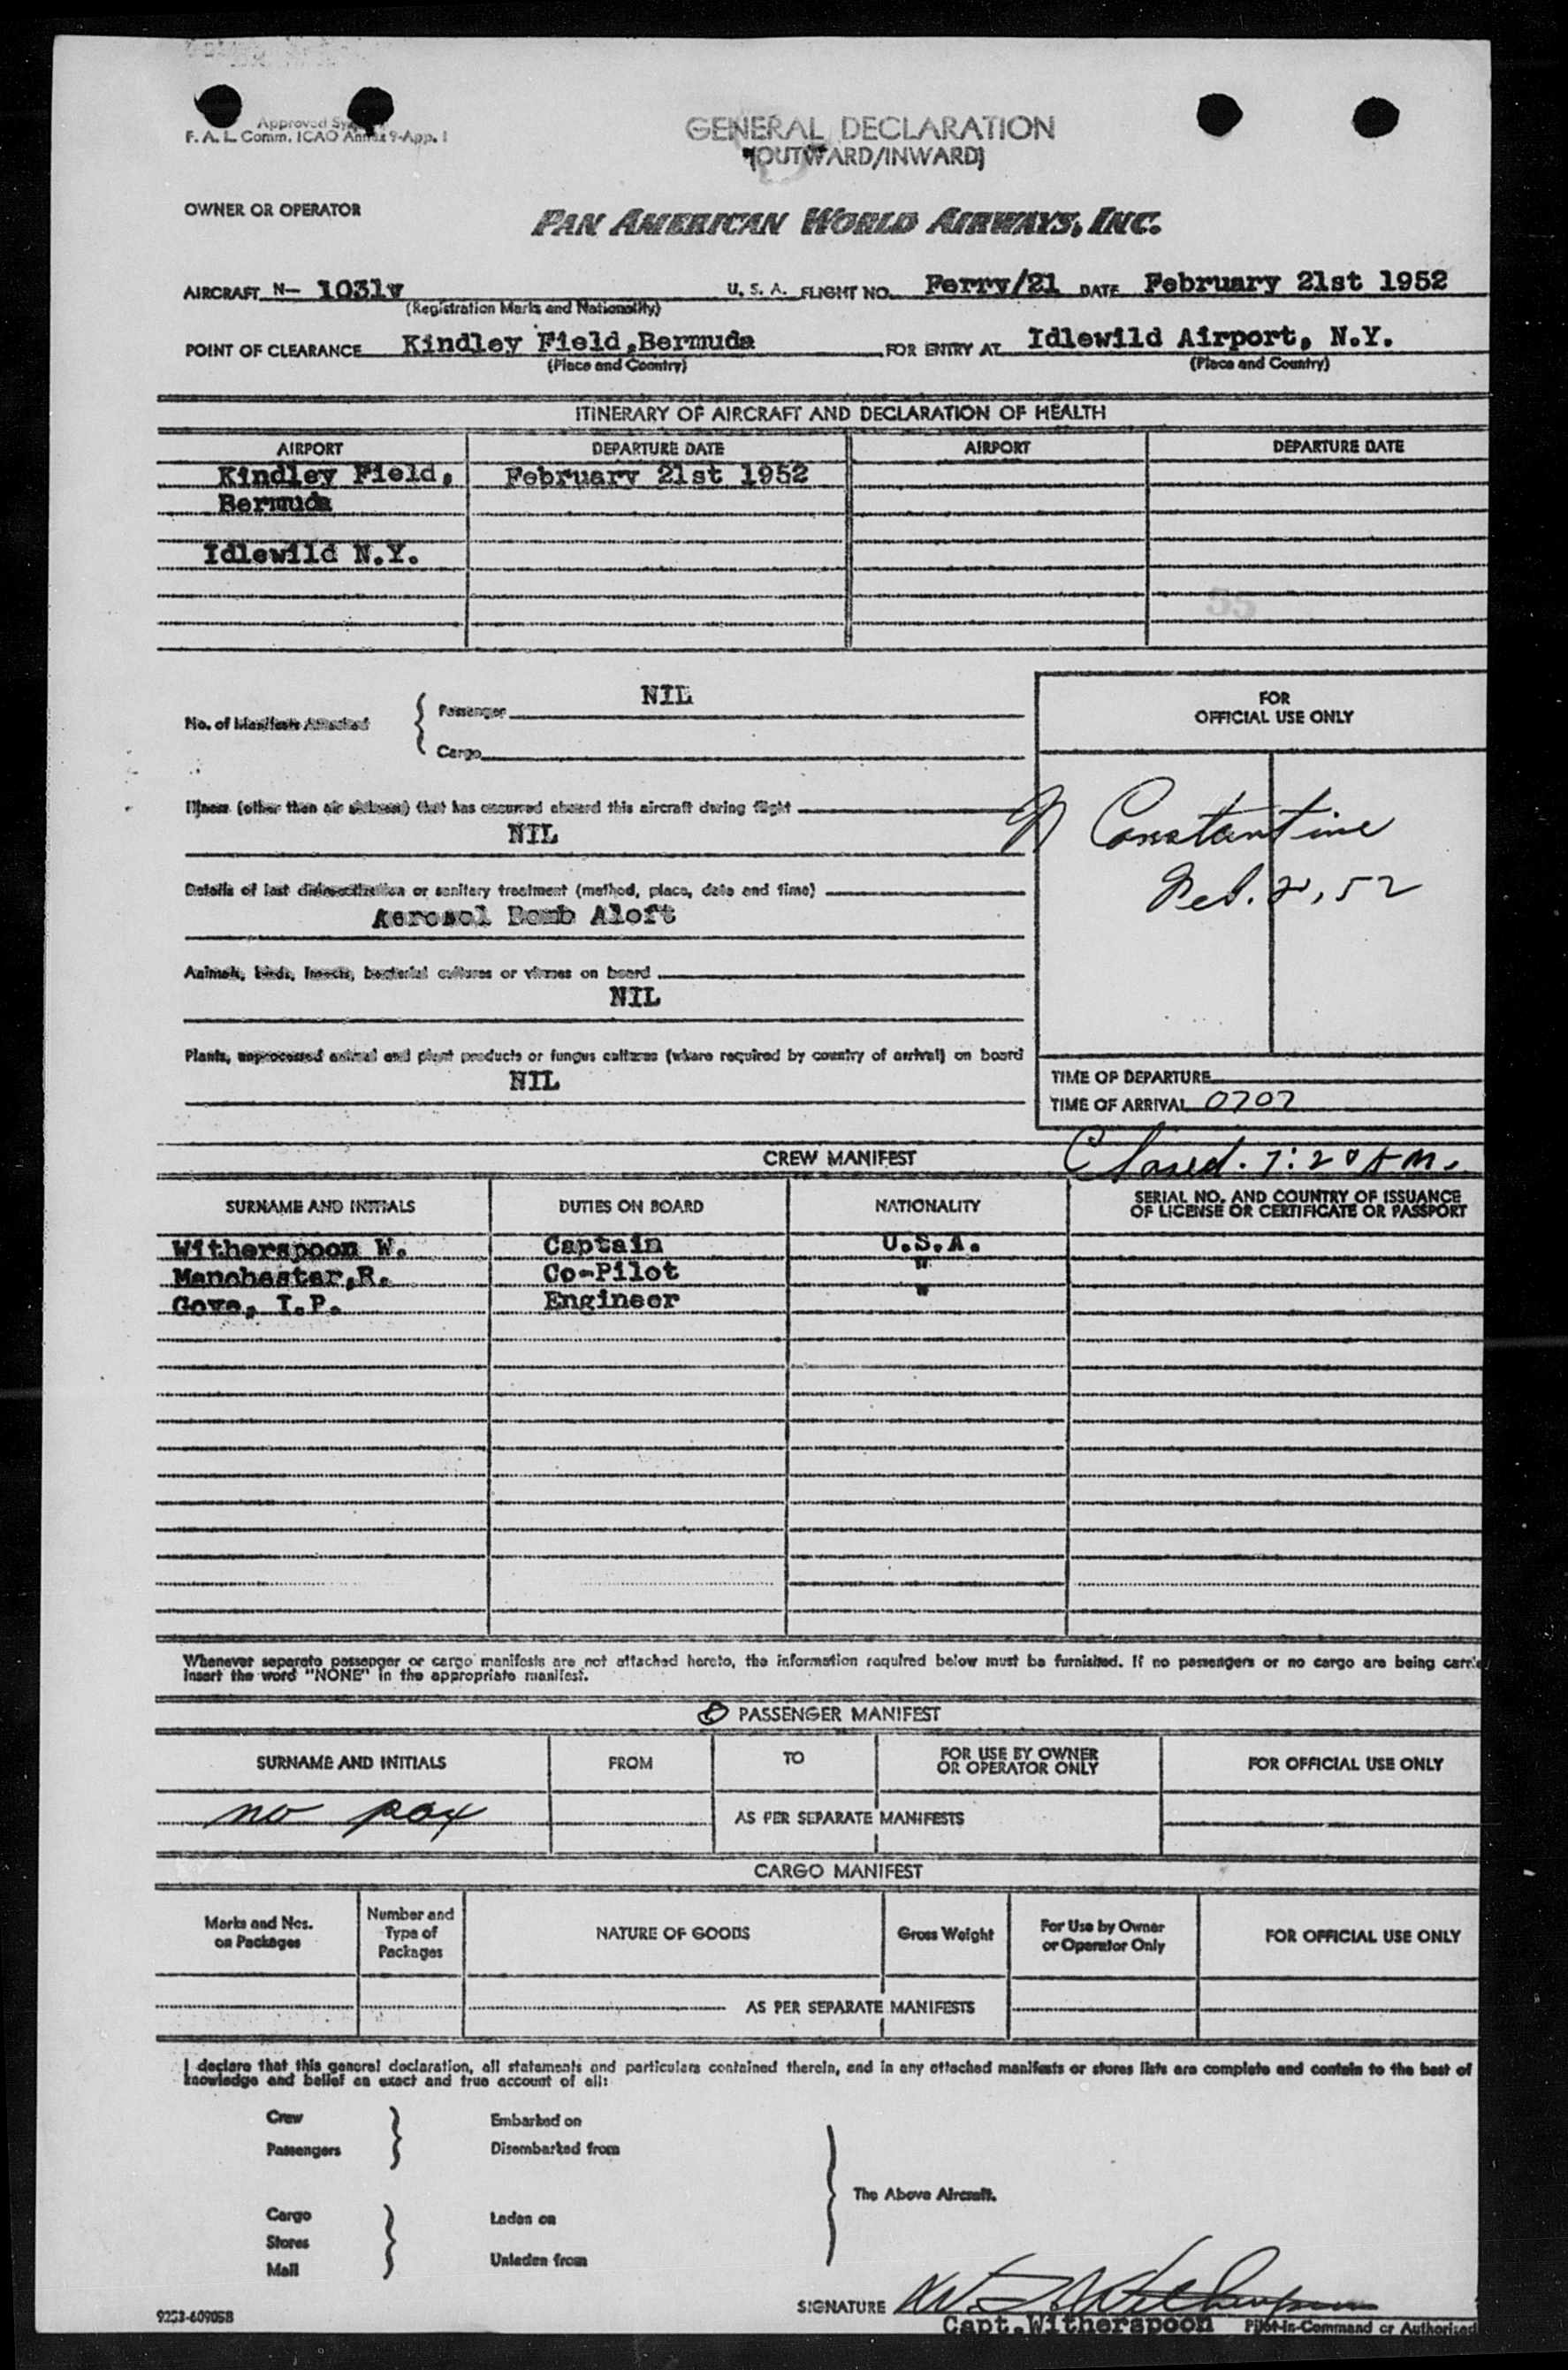 Approved
F. A. L. Comm. ICAO Annex 9-App. 1
GENERAL DECLARATION
(OUTWARD/INWARD)
OWNER OR OPERATOR
PAN AMERICAN WORLD AIRWAYS, INC.
AIRCRAFT N- 1031v U. S. A. FLIGHT NO. Ferry/21 DATE February 21st 1952
(Registration Marks and Nationality)
POINT OF CLEARANCE Kindley Field,Bermuda FOR ENTRY AT Idlewild Airport, N.Y.
(Place and Country) (Place and Country)
ITINERARY OF AIRCRAFT AND DECLARATION OF HEALTH
AIRPORT DEPARTURE DATE AIRPORT DEPARTURE DATE
Kindley Field, February 21st 1952
Bermuda
Idlewild N.Y.
55
No. of Manifests Attached
Passenger NIL
Cargo
FOR
OFFICIAL USE ONLY
Illness (other than air sickness) that has occurred aboard this aircraft during flight
NIL
Constantine
Feb. 21, 52
Details of last disinsectization or sanitary treatment (method, place, date and time)
Aerosol Bomb Aloft
Animals, birds, insects, bacterial cultures or viruses on board
NIL
Plants, unprocessed animal and plant products or fungus cultures (where required by country of arrival) on board
NIL
TIME OF DEPARTURE
TIME OF ARRIVAL 0707
Closed. 7:20 AM.
CREW MANIFEST
SURNAME AND INITIALS DUTIES ON BOARD NATIONALITY SERIAL NO. AND COUNTRY OF ISSUANCE
OF LICENSE OR CERTIFICATE OR PASSPORT
Witherspoon W. Captain U.S.A.
Manchester,R. Co-Pilot "
Gove, I.P. Engineer "
Whenever separate passenger or cargo manifests are not attached hereto, the information required below must be furnished. If no passengers or no cargo are being carrie
insert the word "NONE" in the appropriate manifest.
PASSENGER MANIFEST
SURNAME AND INITIALS FROM TO FOR USE BY OWNER
OR OPERATOR ONLY FOR OFFICIAL USE ONLY
no pax AS PER SEPARATE MANIFESTS
CARGO MANIFEST
Marks and Nos.
on Packages Number and
Type of
Packages NATURE OF GOODS Gross Weight For Use by Owner
or Operator Only FOR OFFICIAL USE ONLY
AS PER SEPARATE MANIFESTS
I declare that this general declaration, all statements and particulars contained therein, and in any attached manifests or stores lists are complete and contain to the best of
knowledge and belief an exact and true account of all:
Crew Embarked on
Passengers Disembarked from
The Above Aircraft.
Cargo Laden on
Stores
Mail Unladen from
SIGNATURE W. Witherspoon
Capt.Witherspoon Pilot-in-Command or Authorised
9253-609058